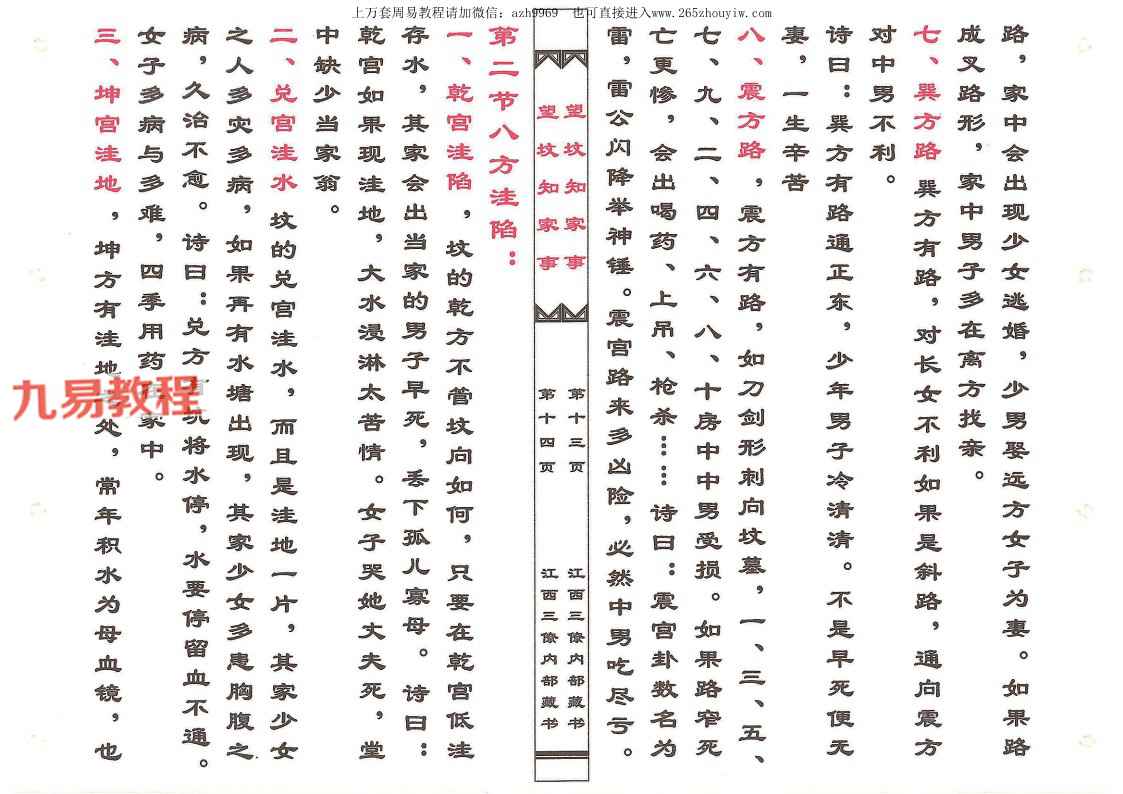 上万套周易教程请加微信：azh9969 也可直接进入www.265zhouyiw.com
路，家中会出现少女逃婚，少男娶远方女子为妻。如果路
成叉路形，家中男子多在离方找亲。
七、巽方路 巽方有路，对长女不利如果是斜路，通向震方
对中男不利。
诗曰：巽方有路通正东，少年男子冷清清。不是早死便无
妻，一生辛苦
八、震方路，震方有路，如刀剑形刺向坟墓，一、三、五、
七、九、二、四、六、八、十房中中男受损。如果路窄死
亡更惨，会出喝药、上吊、枪杀……诗曰：震宫卦数名为
雷，雷公闪降举神锤。震宫路来多凶险，必然中男吃尽亏。
望坟知家事 第十三页 江西三僚内部藏书
望坟知家事 第十四页 江西三僚内部藏书
第二节八方洼陷：
一、乾宫洼陷，坟的乾方不管坟向如何，只要在乾宫低洼
存水，其家会出当家的男子早死，丢下孤儿寡母。诗曰：
乾宫如果现洼地，大水浸淋太苦情。女子哭她丈夫死，堂
中缺少当家翁。
二、兑宫洼水 坟的兑宫洼水，而且是洼地一片，其家少女
之人多灾多病，如果再有水塘出现，其家少女多患胸腹之
病，久治不愈。诗曰：兑方 坑将水停，水要停留血不通。
女子多病与多难，四季用药 家中。
三、坤宫洼地，坤方有洼地 处，常年积水为母血镜，也
九易教程